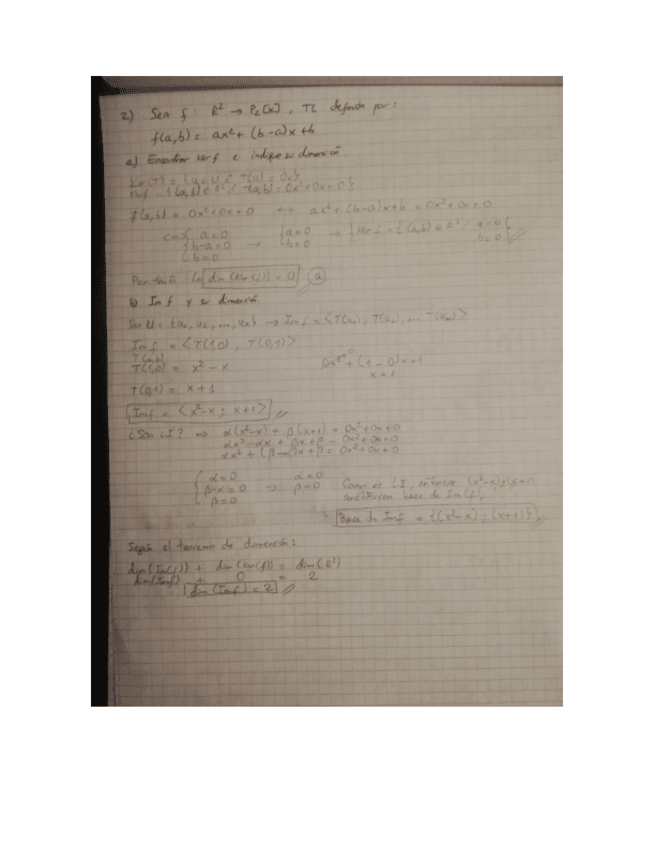 2) Sea f: R² → P₂[x], TL definida por:
f(a,b) = ax² + (b-a)x + b
a) Encontrar Ker f e indique su dimensión.
Ker(T) = {u ∈ U / T(u) = 0v}
Ker f = {(a,b) ∈ R² / T(a,b) = 0x² + 0x + 0}
f(a,b) = 0x² + 0x + 0 ↔ ax² + (b-a)x + b = 0x² + 0x + 0
a=0 a=0 → Ker f = {(a,b) ∈ R² : a=0
b-a=0 → b=0 b=0}
b=0
Por tanto la dim (Ker(f)) = 0 a
b) Im f y su dimensión
Sea U = {u₁, u₂, ..., uₙ} → Im f = <T(u₁), T(u₂), ... T(uₙ)>
Im f = <T(1,0), T(0,1)>
T(a,b)
T(1,0) = x² - x 0x² + (1-0)x + 1
x+1
T(0,1) = x+1
Imf = <x²-x ; x+1>
¿Son LI? ⇒ α(x²-x) + β(x+1) = 0x² + 0x + 0
αx² - αx + βx + β = 0x² + 0x + 0
αx² + (β-α)x + β = 0x² + 0x + 0
α=0 α=0
β-α=0 → β=0 Como es LI, entonces (x²-x) y (x+1)
β=0 constituyen base de Im(f),
Base de Imf = {(x²-x) ; (x+1)}
Según el teorema de dimensión:
dim(Im(f)) + dim(Ker(f)) = dim(R²)
dim(Imf) + 0 = 2
dim(Imf) = 2